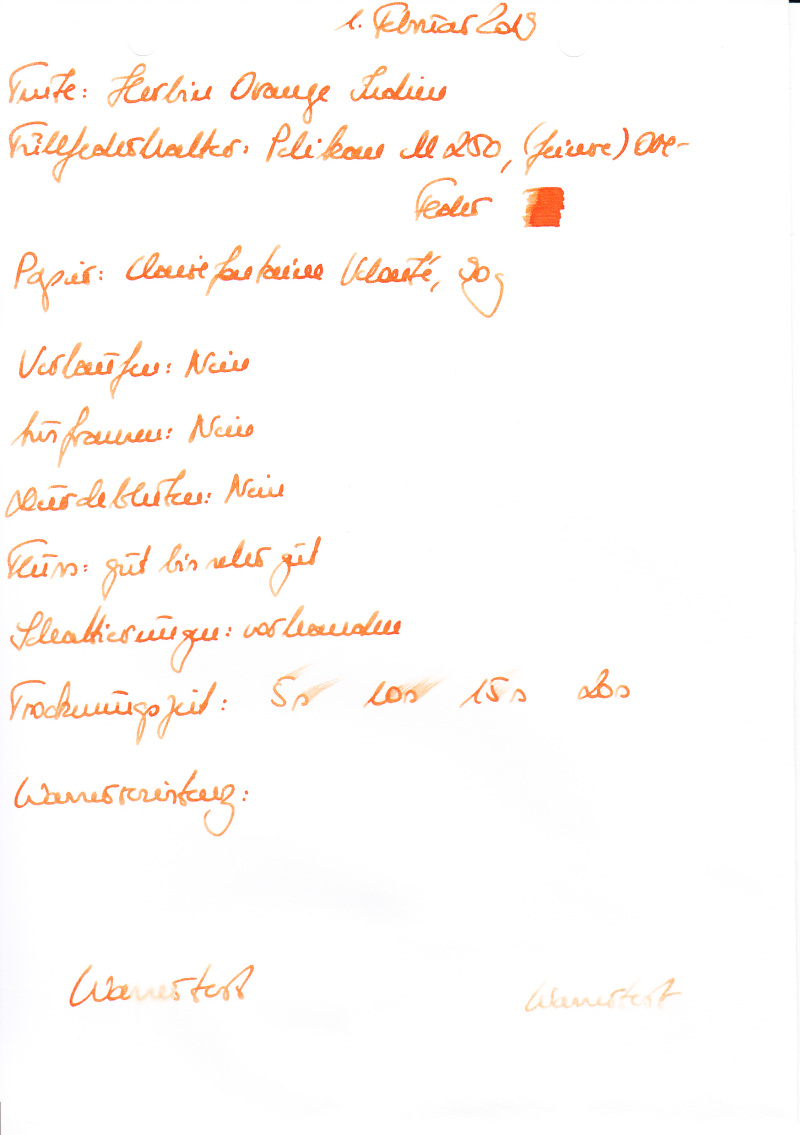 1. Februar 2019
Tinte: Herbin Orange Indien
Füllfederhalter: Pelikan M 250, (feinere) OM-
Feder
Papier: Clairefontaine Velouté, 90g
Verlaufen: Nein
Ausfransen: Nein
Durchbluten: Nein
Fluss: gut bis sehr gut
Schattierungen: vorhanden
Trocknungszeit: 5s 10s 15s 20s
Wasserresistenz:
Wassertest Wassertest